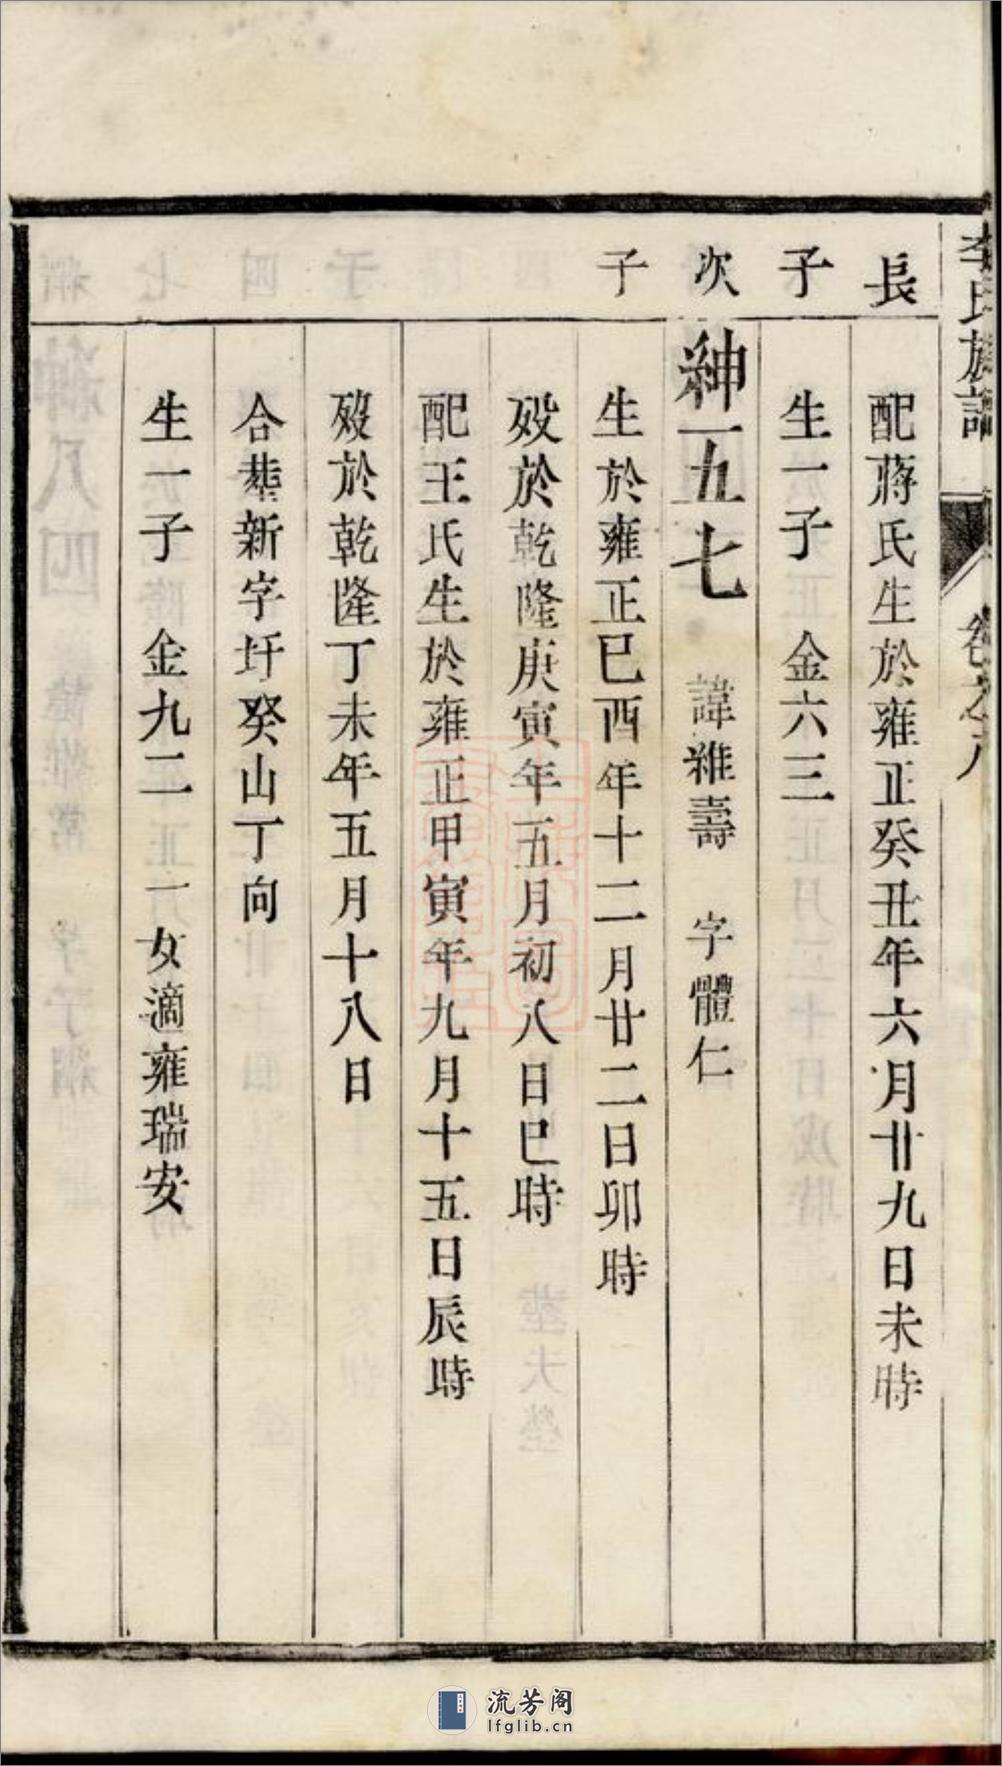 李氏族譜 卷之八
長 配蔣氏生於雍正癸丑年六月廿九日未時
子 生一子 金六三
次 紳一五七 諱維壽 字體仁
子 生於雍正己酉年十二月廿二日卯時
歿於乾隆庚寅年五月初八日巳時
配王氏生於雍正甲寅年九月十五日辰時
歿於乾隆丁未年五月十八日
合塟新字圩癸山丁向
生一子 金九二 一女適雍瑞安
流芳阁
lfglib.cn